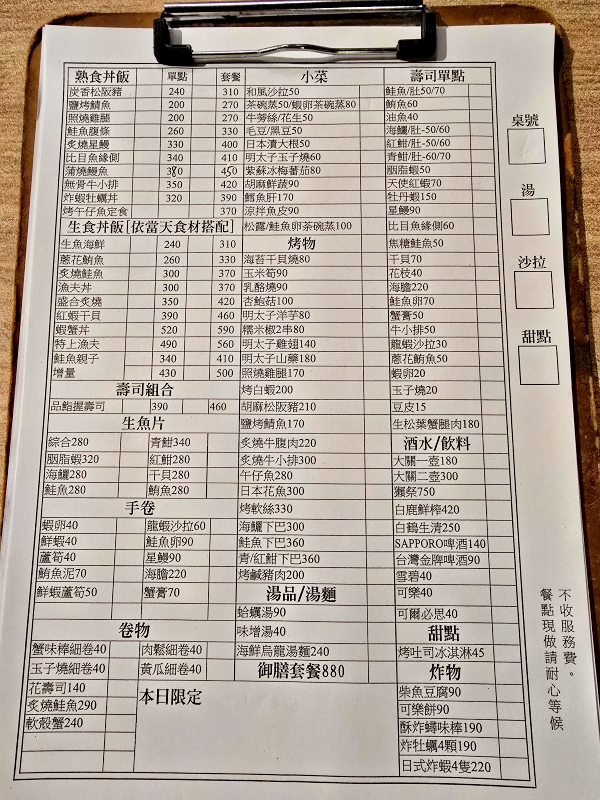 熟食丼飯 單點 套餐
炭香松阪豬 240 310
鹽烤鯖魚 200 270
照燒雞腿 200 270
鮭魚腹條 260 330
炙燒星鰻 330 400
比目魚緣側 340 410
蒲燒鰻魚
無骨牛小排 350 420
炸蝦牡蠣丼 320 390
烤午仔魚定食 370
生食丼飯[依當天食材搭配]
生魚海鮮 240 310
蔥花鮪魚 260 330
炙燒鮭魚 300 370
漁夫丼 300 370
盛合炙燒 350 420
紅蝦干貝 390 460
蝦蟹丼 520 590
特上漁夫 490 560
鮭魚親子 340 410
增量 430 500
壽司組合
品鮨握壽司 390 460
生魚片
綜合280 青魽340
胭脂蝦320 紅魽280
海鱺280 干貝280
鮭魚280 鮪魚280
手卷
蝦卵40 龍蝦沙拉60
鮮蝦40 鮭魚卵90
蘆筍40 星鰻90
鮪魚泥70 海膽220
鮮蝦蘆筍50 蟹膏70
卷物
蟹味棒細卷40 肉鬆細卷40
玉子燒細卷40 黃瓜細卷40
花壽司140
炙燒鮭魚290
軟殼蟹240
本日限定
小菜
和風沙拉50
茶碗蒸50/蝦卵茶碗蒸80
牛蒡絲/花生50
毛豆/黑豆50
日本漬大根50
明太子玉子燒60
紫蘇冰梅番茄80
胡麻鮮蔬90
鱈魚肝170
涼拌魚皮90
松露/鮭魚卵茶碗蒸100
烤物
海苔干貝燒80
玉米筍90
乳酪燒90
杏鮑菇100
明太子洋芋80
糯米椒2串80
明太子雞翅140
明太子山藥180
照燒雞腿170
烤白蝦200
胡麻松阪豬210
鹽烤鯖魚170
炙燒牛腹肉220
炙燒牛小排300
午仔魚280
日本花魚300
烤軟絲330
海鱺下巴300
鮭魚下巴360
青/紅魽下巴360
烤鹹豬肉200
湯品/湯麵
蛤蠣湯90
味增湯40
海鮮烏龍湯麵240
御膳套餐880
壽司單點
鮭魚/肚50/70
鮪魚60
油魚40
海鱺/肚-50/60
紅魽/肚-50/60
青魽/肚-60/70
胭脂蝦50
天使紅蝦70
牡丹蝦150
星鰻90
比目魚緣側60
焦糖鮭魚50
干貝70
花枝40
海膽220
鮭魚卵70
蟹膏50
牛小排50
龍蝦沙拉30
蔥花鮪魚50
蝦卵20
玉子燒20
豆皮15
生松葉蟹腿肉180
酒水/飲料
大關一壺180
大關二壺300
獺祭750
白鹿鮮榨420
白鶴生清250
SAPPORO啤酒140
台灣金牌啤酒90
雪碧40
可樂40
可爾必思40
甜點
烤吐司冰淇淋45
炸物
柴魚豆腐90
可樂餅90
酥炸蟳味棒190
炸牡蠣4顆190
日式炸蝦4隻220
桌號
湯
沙拉
甜點
不收服務費。
餐點現做請耐心等候